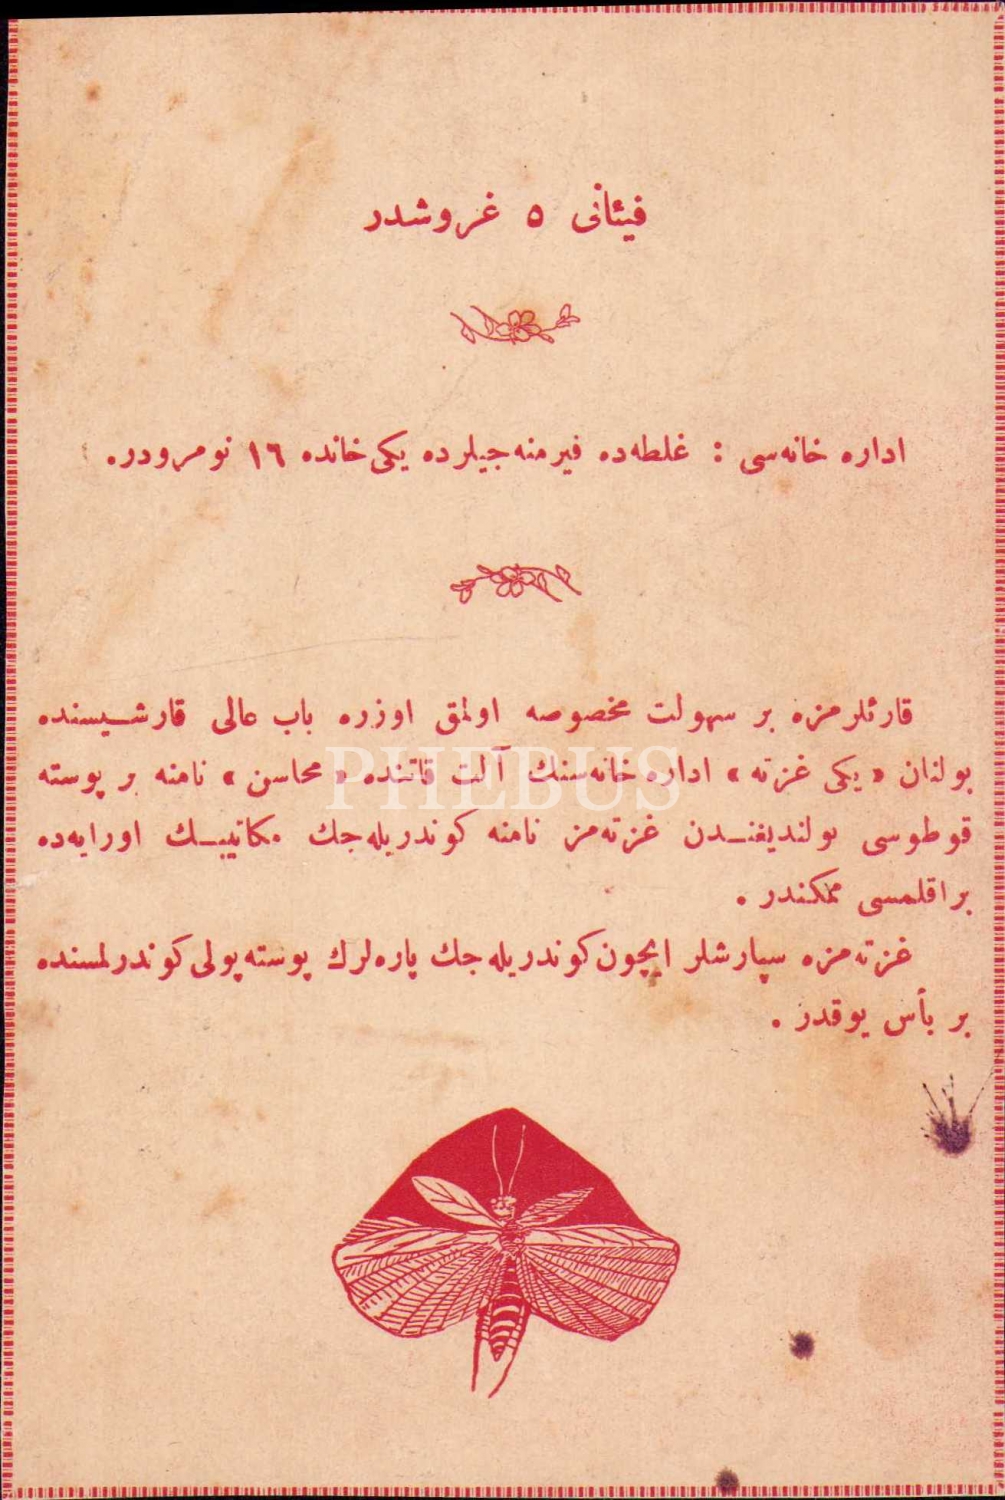 فيئاتى ٥ غروشدر
اداره خانه‌سى : غلطه‌ده فيرمنه‌جيلرده يكى خانده ١٦ نومرودر.
قارئلرمزه بر سهولت مخصوصه اولمق اوزره باب عالى قارشيسنده
بولنان « يكى غزته » اداره خانه‌سنك آلت قاتنده « محاسن » نامنه بر پوسته
قوطوسى بولنديغندن غزته‌مز نامنه كوندريله‌جك مكاتيبك اورايه‌ده
براقلمسى ممكندر .
غزته‌مزه سپارشلر ايچون كوندريله‌جك پاره‌لرك پوسته پولى كوندرلمسنده
بر بأس يوقدر .
PHEBUS